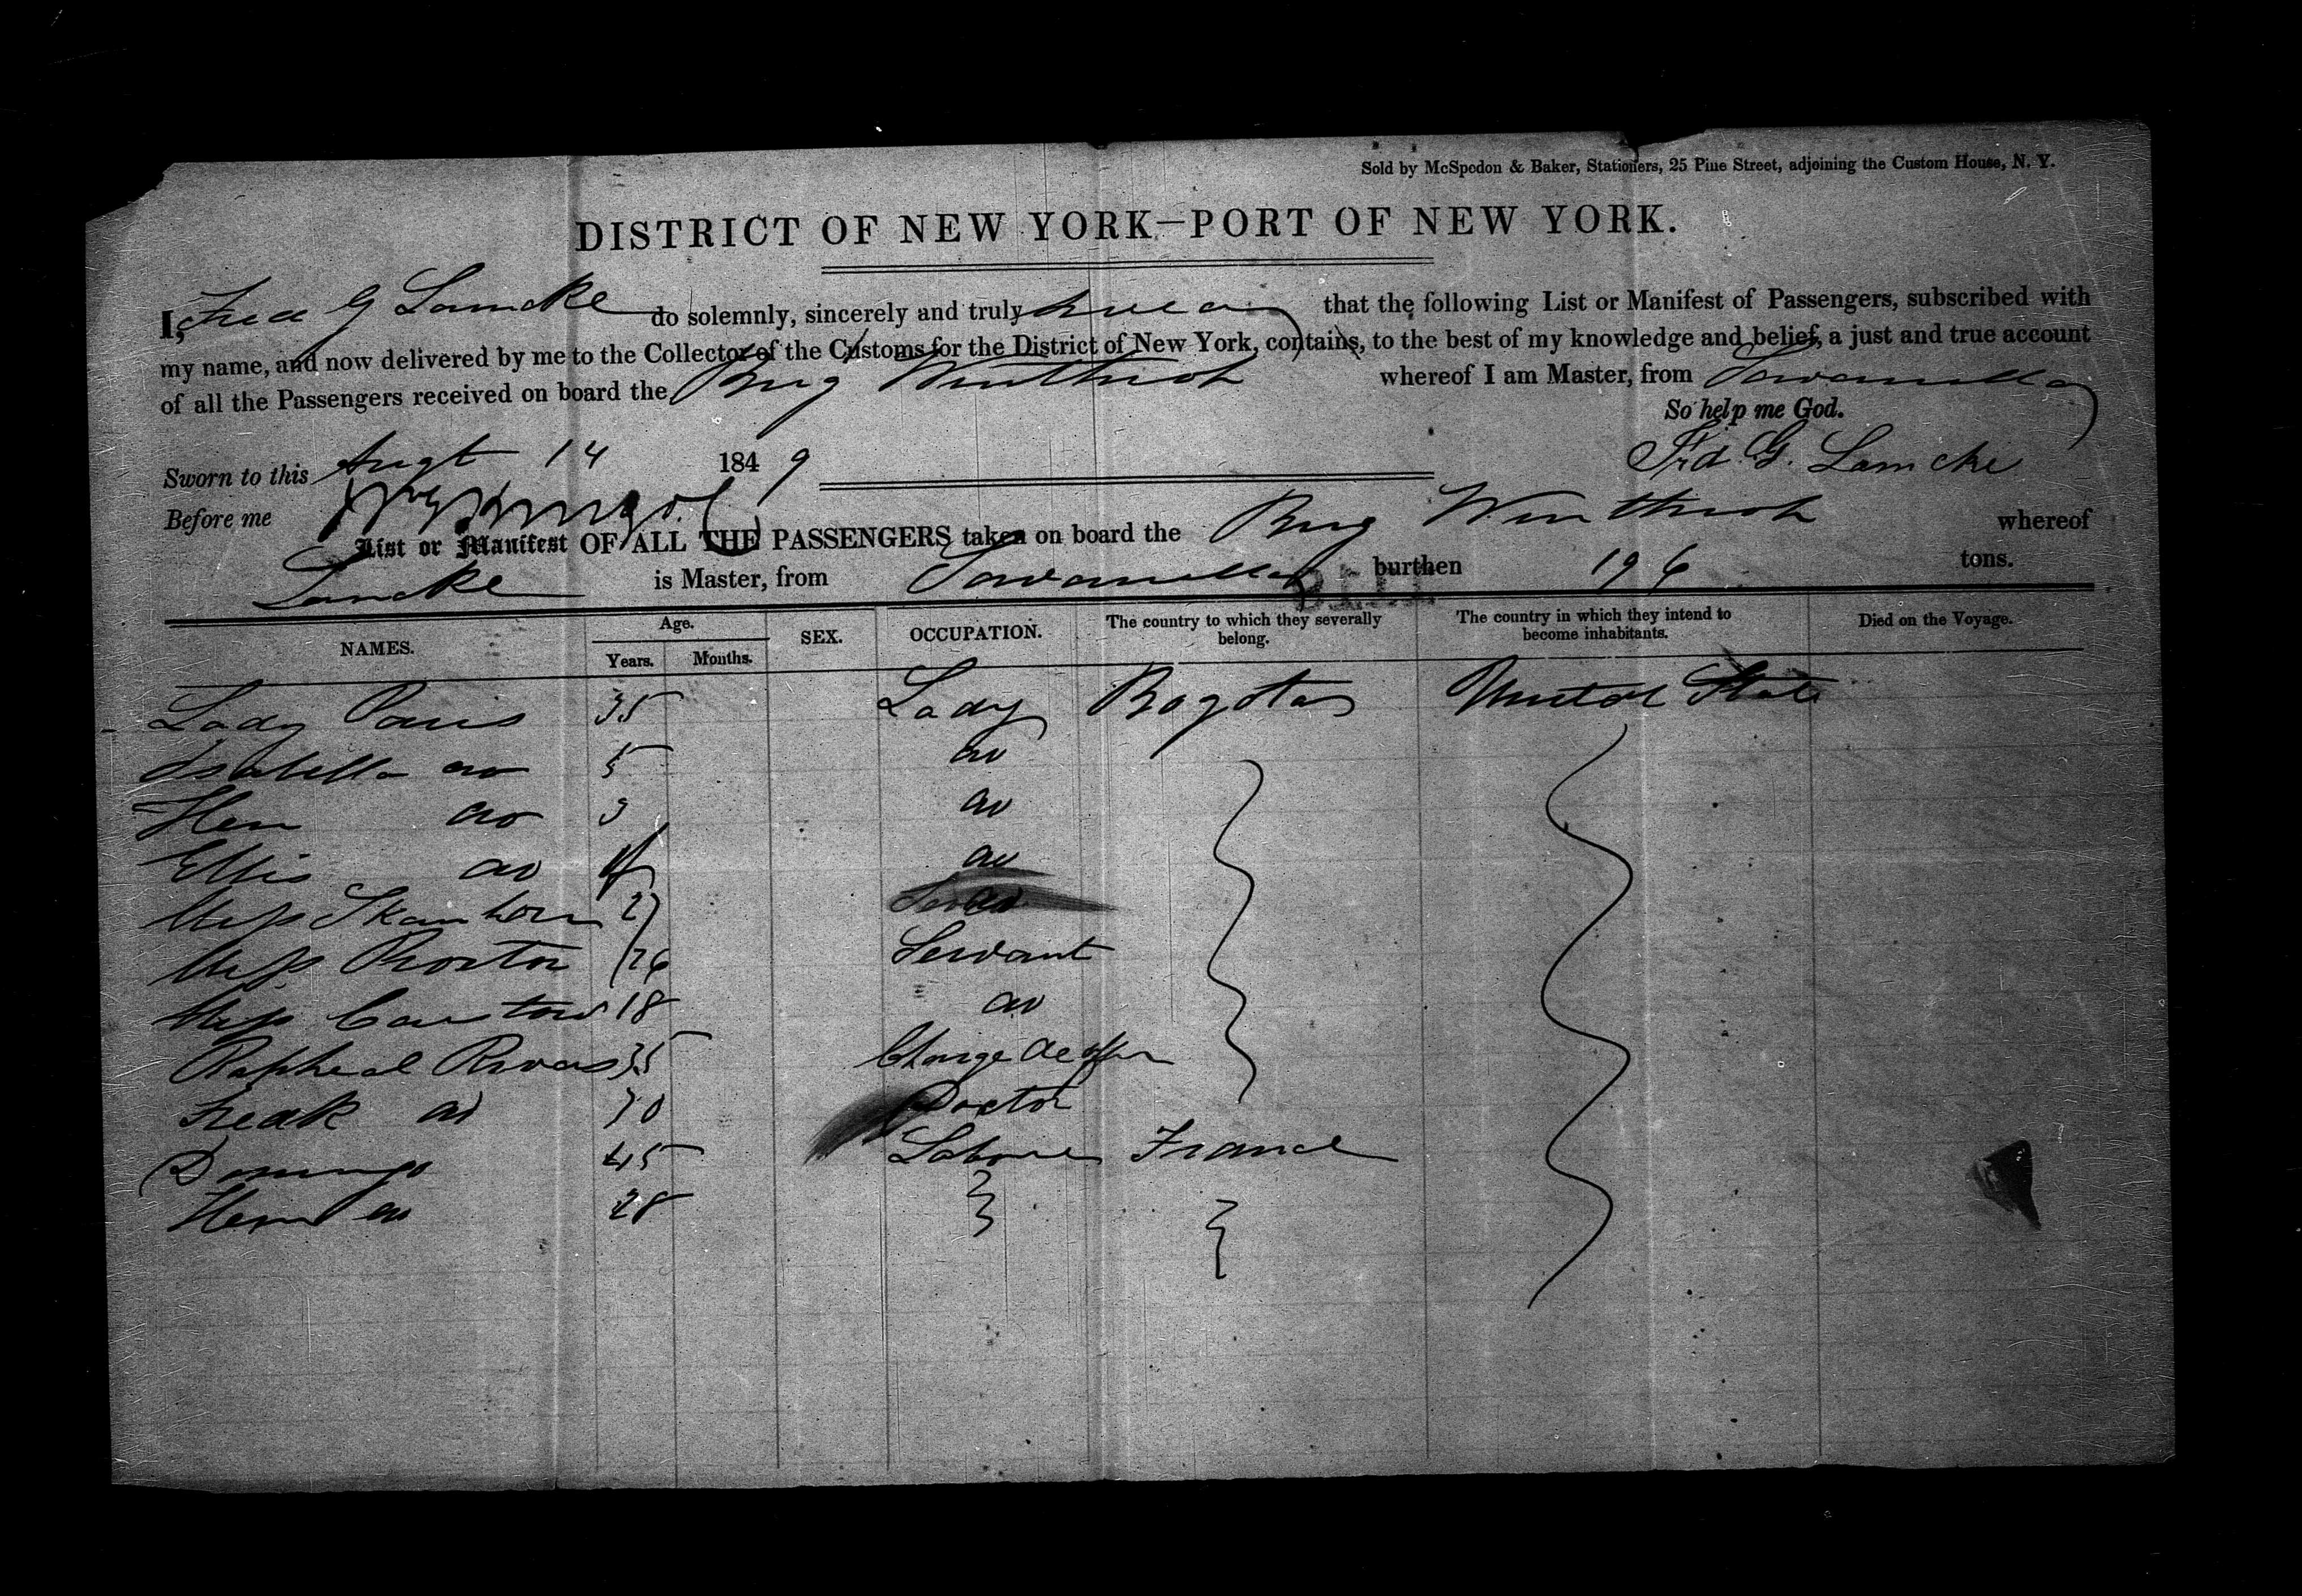 Sold by McSpedon & Baker, Stationers, 25 Pine Street, adjoining the Custom House, N. Y.
DISTRICT OF NEW YORK—PORT OF NEW YORK.
I, Fred G Lamcke do solemnly, sincerely and truly swear that the following List or Manifest of Passengers, subscribed with
my name, and now delivered by me to the Collector of the Customs for the District of New York, contains, to the best of my knowledge and belief, a just and true account
of all the Passengers received on board the Brig Winthrop whereof I am Master, from Savanilla
So help me God.
Sworn to this Augt 14 1849
Frd. G. Lamcke
Before me
List or Manifest OF ALL THE PASSENGERS taken on board the Brig Winthrop whereof
Lamcke is Master, from Savanilla burthen 196 tons.
NAMES. Age. Years. Months. SEX. OCCUPATION. The country to which they severally belong. The country in which they intend to become inhabitants. Died on the Voyage.
Lady Paris 35 Lady Bogota United State
Isabella do 5 do
Hen do 3 do
Ellis do do
Miss 27 do
Miss Proctor 26 Servant
Miss 18 do
Rapheal Rivas 35 Charge de affair
Fredk do 30 Doctor
Domingo 45 Laborer France
Henr do 28